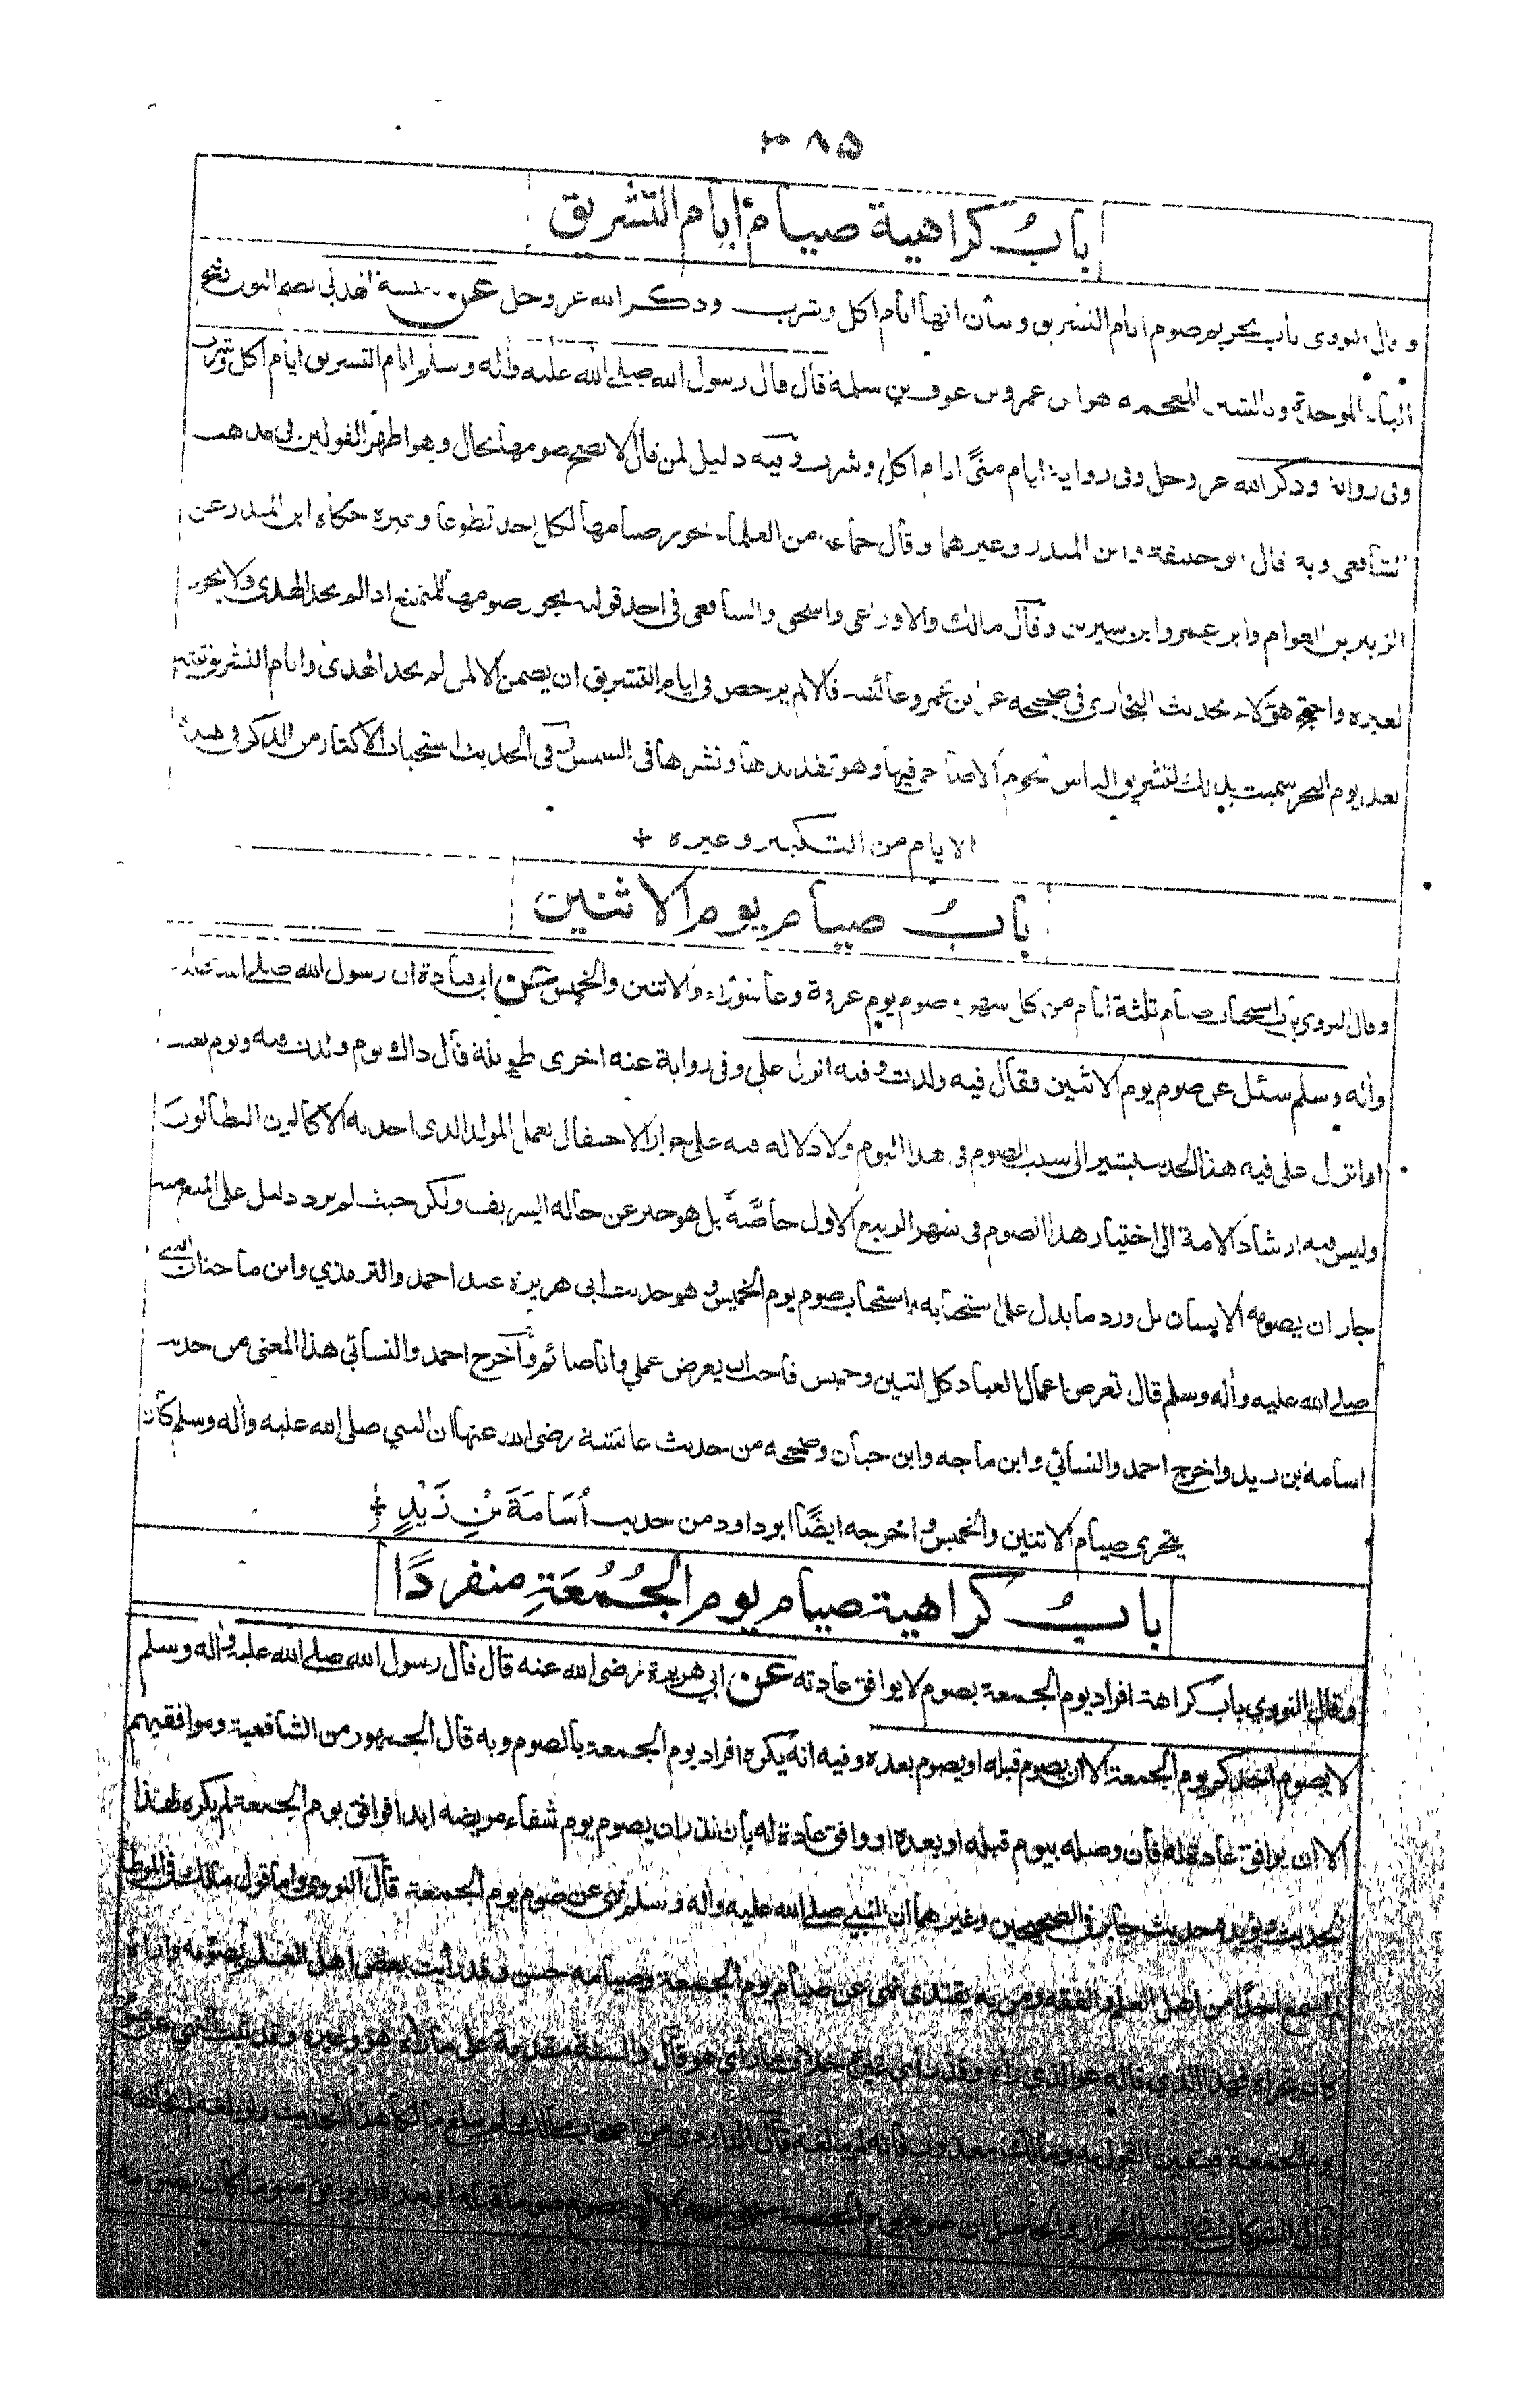 ٣٨٥
باب كراهية صيام ايام التشريق
وقال النووي باب تحريم صوم ايام التشريق وبيان انها ايام اكل وشرب وذكر الله عز وجل عن نبيشة الهذلي بضم النون فتح
الباء الموحدة وبالشين المعجمة هو ابن عمرو بن عوف بن سلمة قال قال رسول الله صلى الله عليه واله وسلم ايام التشريق ايام اكل وشرب
وفي رواية وذكر الله عز وجل وفي رواية ايام منىً ايام اكل وشرب وفيه دليل لمن قال لا يصح صومها بحال وهو اظهر القولين في مذهب
الشافعي وبه قال ابو حنيفة وابن المنذر وغيرهما وقال جماعة من العلماء يجوز صيامها لكل احد تطوعا وغيره حكاه ابن المنذر عن
الزبير بن العوام وابن عمر وابن سيرين وقال مالك والاوزاعي واسحق والشافعي في احد قوليه يجوز صومها للمتمتع اذا لم يجد الهدى ولا يجوز
لغيره واحتج هؤلاء بحديث البخاري في صحيحه عن ابن عمر وعائشة قالا لم يرخص في ايام التشريق ان يصمن الا لمن لم يجد الهدى وايام التشريق ثلثة
بعد يوم النحر سميت بذلك لتشريق الناس لحوم الاضاحي فيها وهو تقديدها ونشرها في الشمس وفي الحديث استحباب الاكثار من الذكر في هذه
الايام من التكبير وغيره +
باب صيام يوم الاثنين
وقال النووي باب استحباب صيام ثلثة ايام من كل شهر وصوم يوم عرفة وعاشوراء والاثنين والخميس عن ابي قتادة ان رسول الله صلى الله عليه
واله وسلم سئل عن صوم يوم الاثنين فقال فيه ولدت وفيه انزل علي وفي رواية عنه اخرى طويلة قال ذاك يوم ولدت فيه ويوم بعثت
او انزل علي فيه هذا الحديث يشير الى سبب الصوم في هذا اليوم ولا دلالة فيه على جواز الاحتفال بعمل المولد الذي احدثه الاكالون البطالون
وليس فيه ارشاد الامة الى اختيار هذا الصوم في شهر الربيع الاول خاصَّةً بل هو خبر عن حاله الشريف ولكن حيث لم يرد دليل على المنع منه
جاز ان يصومه الانسان بل ورد ما يدل على استحبابه باستحباب صوم يوم الخميس وهو حديث ابي هريرة عند احمد والترمذي وابن ماجة ان النبي
صلى الله عليه واله وسلم قال تعرض اعمال العباد كل اثنين وخميس فاحب ان يعرض عملي وانا صائم واخرج احمد والنسائي هذا المعنى من حديث
اسامة بن زيد واخرج احمد والنسائي وابن ماجه وابن حبان وصححه من حديث عائشة رضي الله عنها ان النبي صلى الله عليه واله وسلم كان
يتحرى صيام الاثنين والخميس واخرجه ايضًا ابو داود من حديث اُسَامَةَ بْنِ زَيْدٍ +
باب كراهية صيام يوم الجُمُعَةِ منفردًا
وقال النووي باب كراهة افراد يوم الجمعة بصوم لا يوافق عادته عن ابي هريرة رضي الله عنه قال قال رسول الله صلى الله عليه واله وسلم
لا يصوم احدكم يوم الجمعة الا ان يصوم قبله او يصوم بعده وفيه انه يكره افراد يوم الجمعة بالصوم وبه قال الجمهور من الشافعية وموافقيهم
الا ان يوافق عادة له فان وصله بيوم قبله او بعده او وافق عادة له بان نذر ان يصوم يوم شفاء مريضه ابدا فوافق يوم الجمعة لم يكره لهذا
الحديث ويؤيده حديث جابر في الصحيحين وغيرهما ان النبي صلى الله عليه واله وسلم نهى عن صوم يوم الجمعة قال النووي واما قول مالك في الموطا
لم اسمع احدًا من اهل العلم والفقه ومن به يقتدى نهى عن صيام يوم الجمعة وصيامه حسن وقد رأيت بعض اهل العلم يصومه واراه
كان يتحراه فهذا الذي قاله هو الذي رآه وقد رأى غيره خلاف ما رأى هو قال والسنة مقدمة على ما رآه هو وغيره وقد ثبت النهي عن صوم
يوم الجمعة فيتعين القول به ومالك معذور فانه لم يبلغه قال الداودي من اصحاب مالك لم يبلغ مالكا هذا الحديث ولو بلغه لم يخالفه
قال الشوكاني في السيل الجرار والحاصل ان صوم يوم الجمعة منهي عنه الا ان يصوم يوما قبله او بعده او يوافق صوما كان يصومه